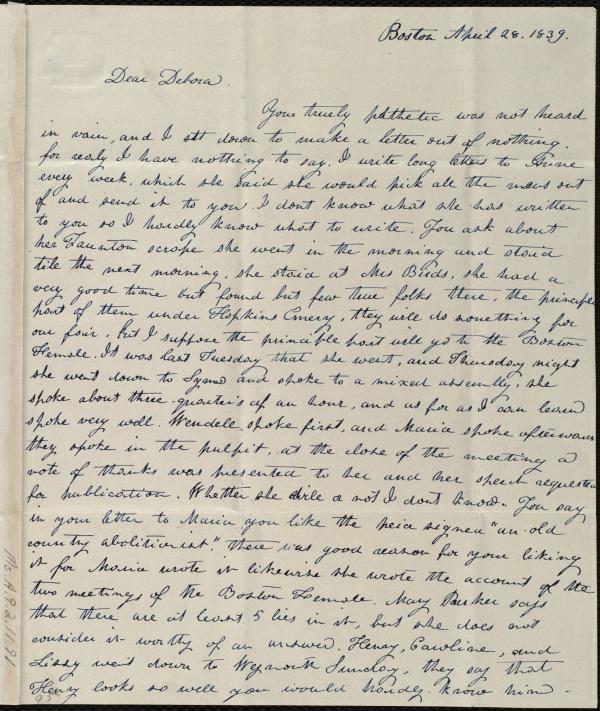 Boston April 28. 1839.
Dear Debora.
Your truely pathetic was not heard
in vain, and I sit down to make a letter out of nothing.
for realy I have nothing to say. I write long letters to Anne
every week, which she said she would pick all the news out
of and send it to you. I dont know what she has written
to you so I hardly know what to write. You ask about
her Taunton scrape she went in the morning and staid
till the next morning, she staid at Mrs Birds, she had a
very good time but found but few true folks there, the principle
part of them under Hopkins Emery, they will do something for
our fair, but I suppose the principle part will go to the Boston
Female. It was last Tuesday that she went, and Thursday night
she went down to Lynn and spoke to a mixed assembly, she
spoke about three-quarters of an hour, and as far as I can learn
spoke very well. Wendell spoke first, and Maria spoke afterwards
they spoke in the pulpit, at the close of the meeting a
vote of thanks was presented to her and her speech requested
for publication. Whether she will or not I dont know. You say
in your letter to Maria you like the peice signed "an old
country abolitionist." there was good reason for your liking
it for Maria wrote it likewise she wrote the account of the
two meetings of the Boston Female. Mary Parker says
that there are at least 5 lies in it, but she does not
consider it worthy of an answer. Henry, Caroline, and
Lissy went down to Weymouth Sunday, they say that
Henry looks so well you would hardly know him.
Ms.A.9.2.11.91